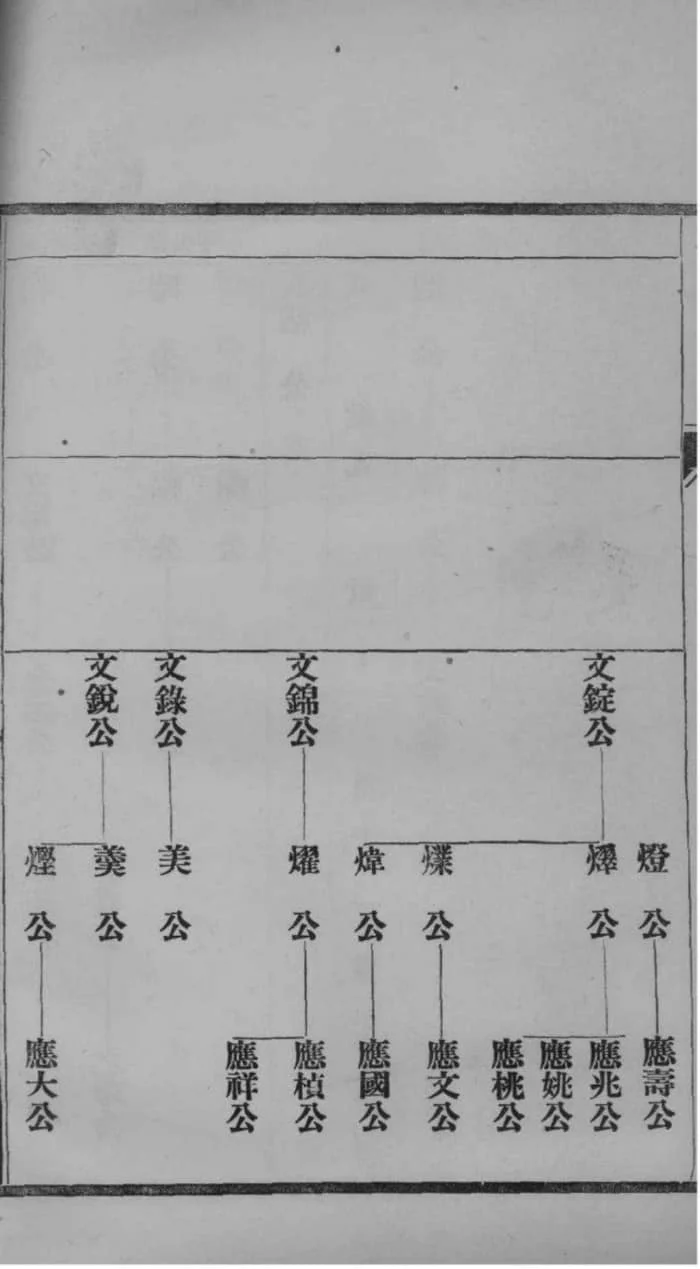 文錠公
文錦公
文錄公
文銳公
燈公
燡公
爍公
煒公
燿公
美公
羮公
煙公
應壽公
應兆公
應姚公
應桃公
應文公
應國公
應楨公
應祥公
應大公